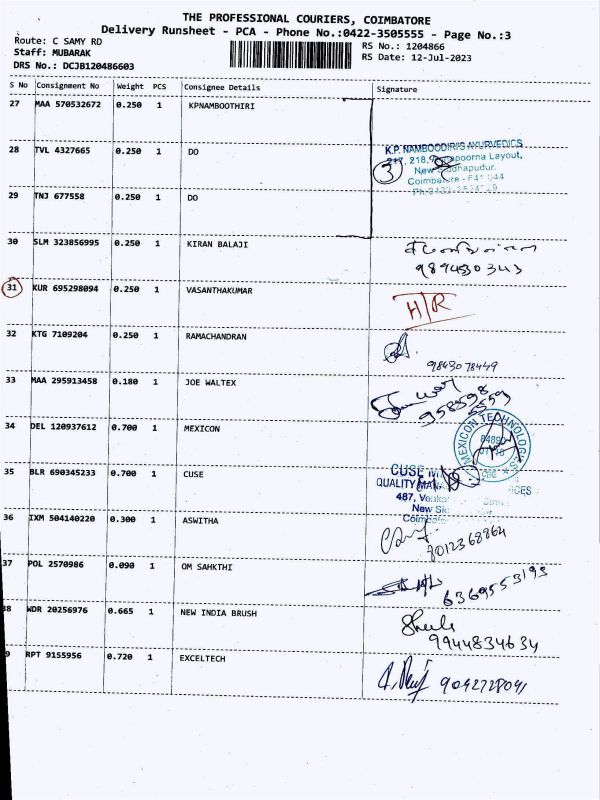 THE PROFESSIONAL COURIERS, COIMBATORE
Delivery Runsheet - PCA - Phone No.:0422-3505555 - Page No.:3
Route: C SAMY RD
RS No.: 1204866
Staff: MUBARAK
RS Date: 12-Jul-2023
DRS No.: DCJB120486603
S No Consignment No Weight PCS Consignee Details Signature
27 MAA 570532672 0.250 1 KPNAMBOOTHIRI
28 TVL 4327665 0.250 1 DO
K.P. NAMBOODIRI'S AYURVEDICS
Layout,
New Siddhapudur.
3
Coimbatore - 641 044
29 TNJ 677558 0.250 1 DO
30 SLM 323856995 0.250 1 KIRAN BALAJI
9894530343
31 KUR 695298094 0.250 1 VASANTHAKUMAR
H/R
32 KTG 7109204 0.250 1 RAMACHANDRAN
9843078449
33 MAA 295913458 0.180 1 JOE WALTEX
34 DEL 120937612 0.700 1 MEXICON
MEXICON TECHNOLOGIES
35 BLR 690345233 0.700 1 CUSE
CUSE
QUALITY
487,
New
36 IXM 504140220 0.300 1 ASWITHA
8012368864
37 POL 2570986 0.090 1 OM SAHKTHI
6369553193
38 WDR 20256976 0.665 1 NEW INDIA BRUSH
9944834634
9 RPT 9155956 0.720 1 EXCELTECH
9092728091